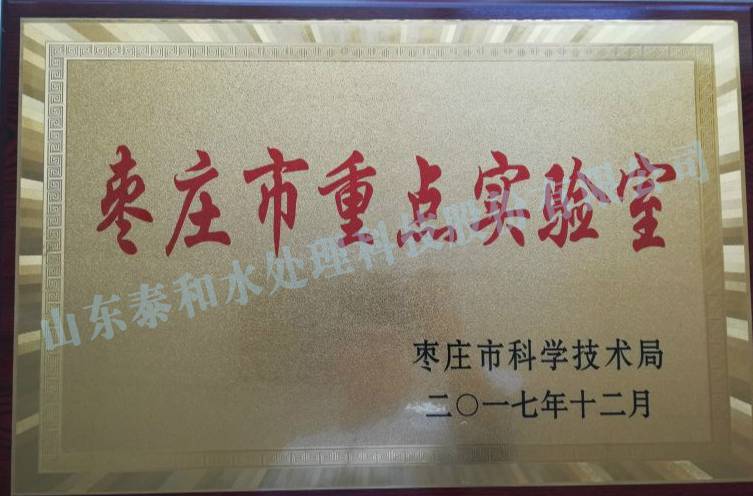 枣庄市重点实验室
山东泰和水处理科技股份有限公司
枣庄市科学技术局
二〇一七年十二月